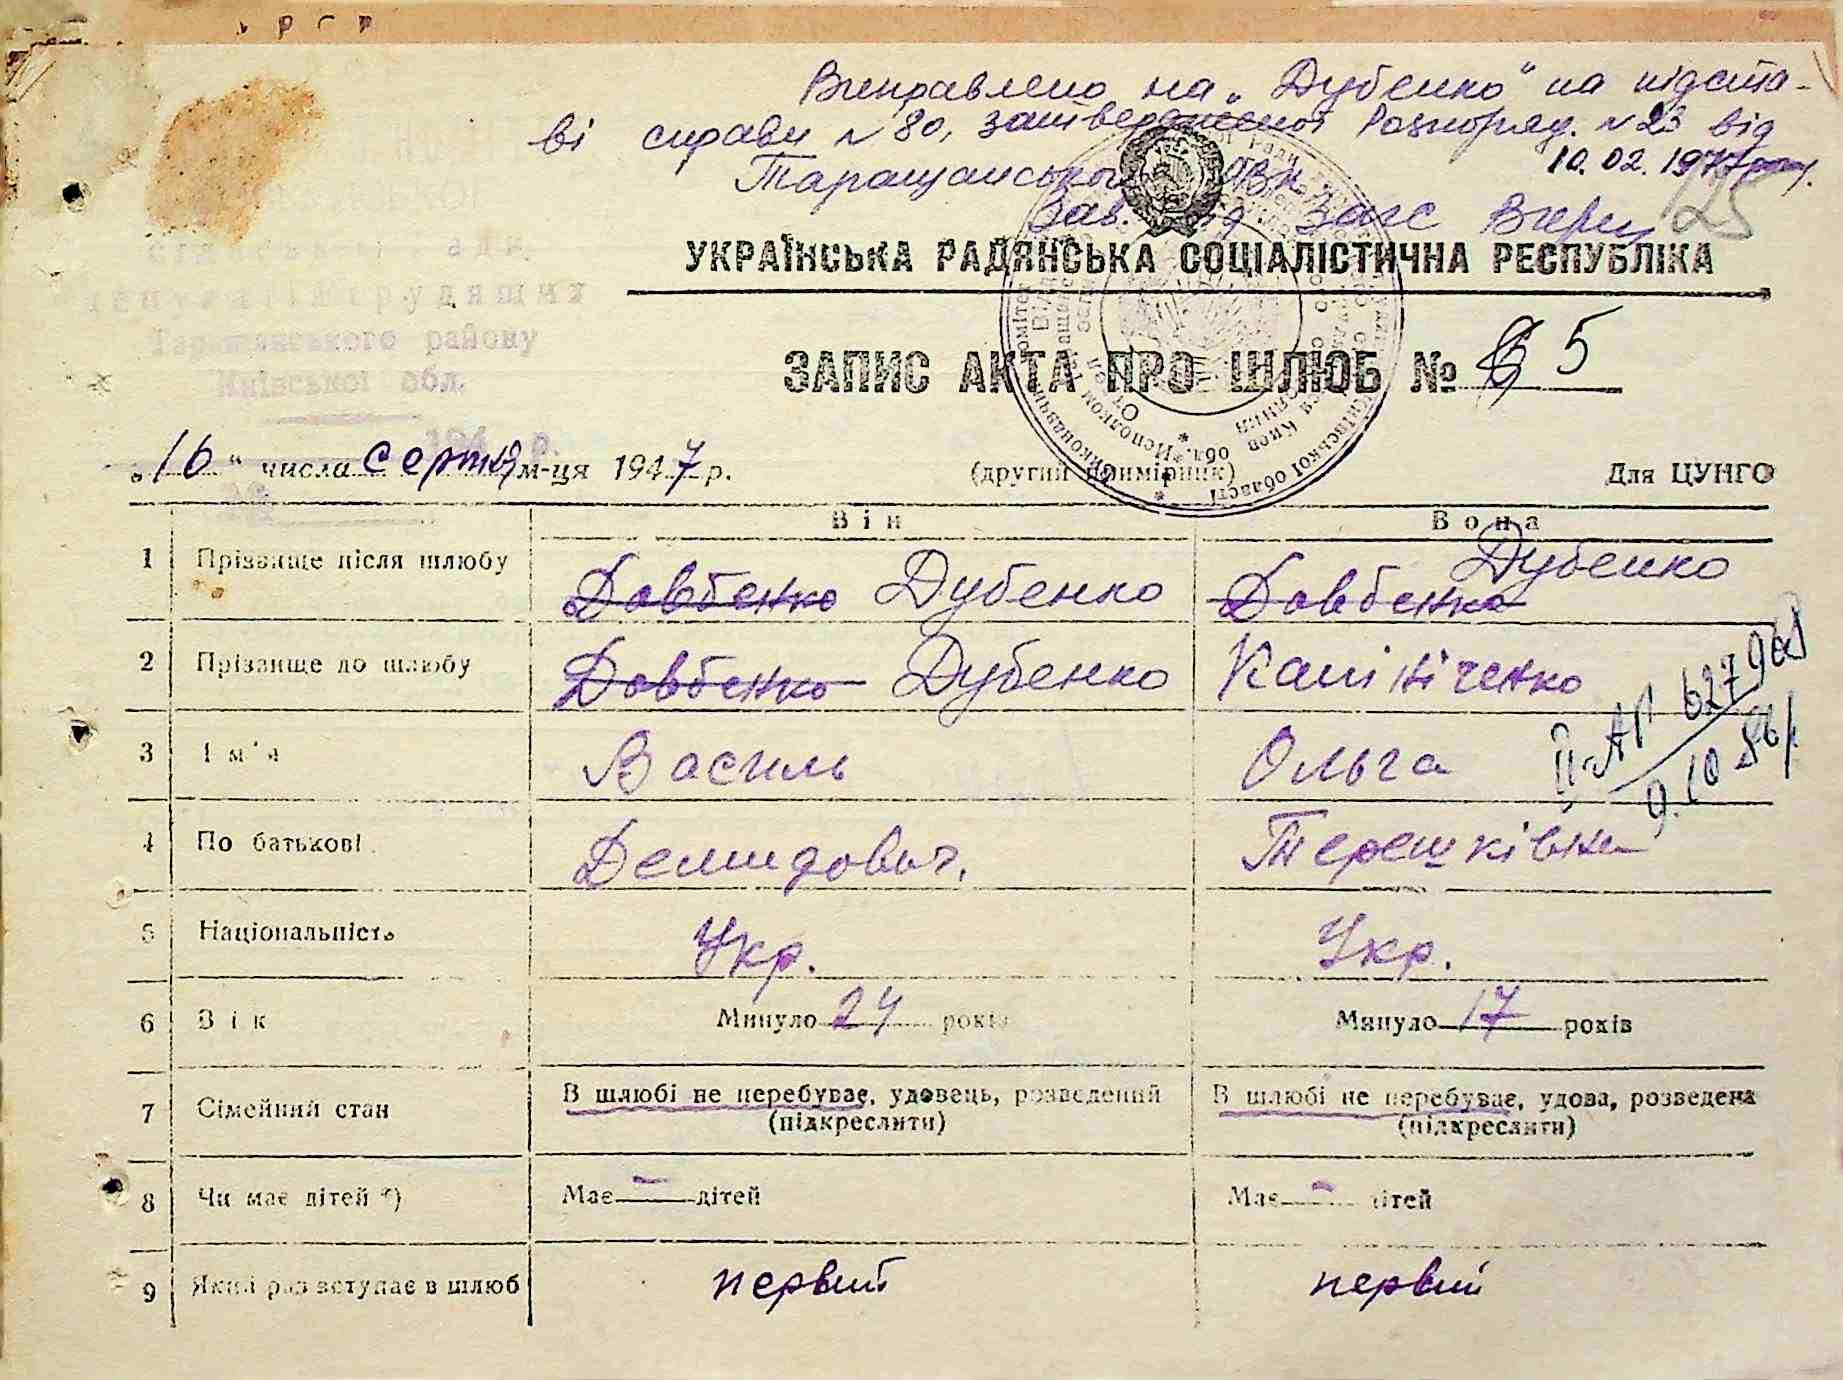 Виправлено на „Дубенко" на підста-
ві справи №80, затвердженої Розпоряд. №23 від
Таращанського РВК 10.02.1977 року.
Зав. Загс
125
УКРАЇНСЬКА РАДЯНСЬКА СОЦІАЛІСТИЧНА РЕСПУБЛІКА
Таращанського району
Київської обл.
ЗАПИС АКТА ПРО ШЛЮБ № 5
„16" числа серпня м-ця 1947 р. (другий примірник) Для ЦУНГО
Він Вона
1 Прізвище після шлюбу Довбенко Дубенко Довбенко Дубенко
2 Прізвище до шлюбу Довбенко Дубенко Калініченко
II-АР 627968
9.10.86
3 Ім'я Василь Ольга
4 По батькові Демидович. Терешківна
5 Національність Укр. Укр.
6 Вік Минуло 24 років Минуло 17 років
7 Сімейний стан В шлюбі не перебуває, удовець, розведений (підкреслити) В шлюбі не перебуває, удова, розведена (підкреслити)
8 Чи має дітей *) Має — дітей Має — дітей
9 Який раз вступає в шлюб первий первий